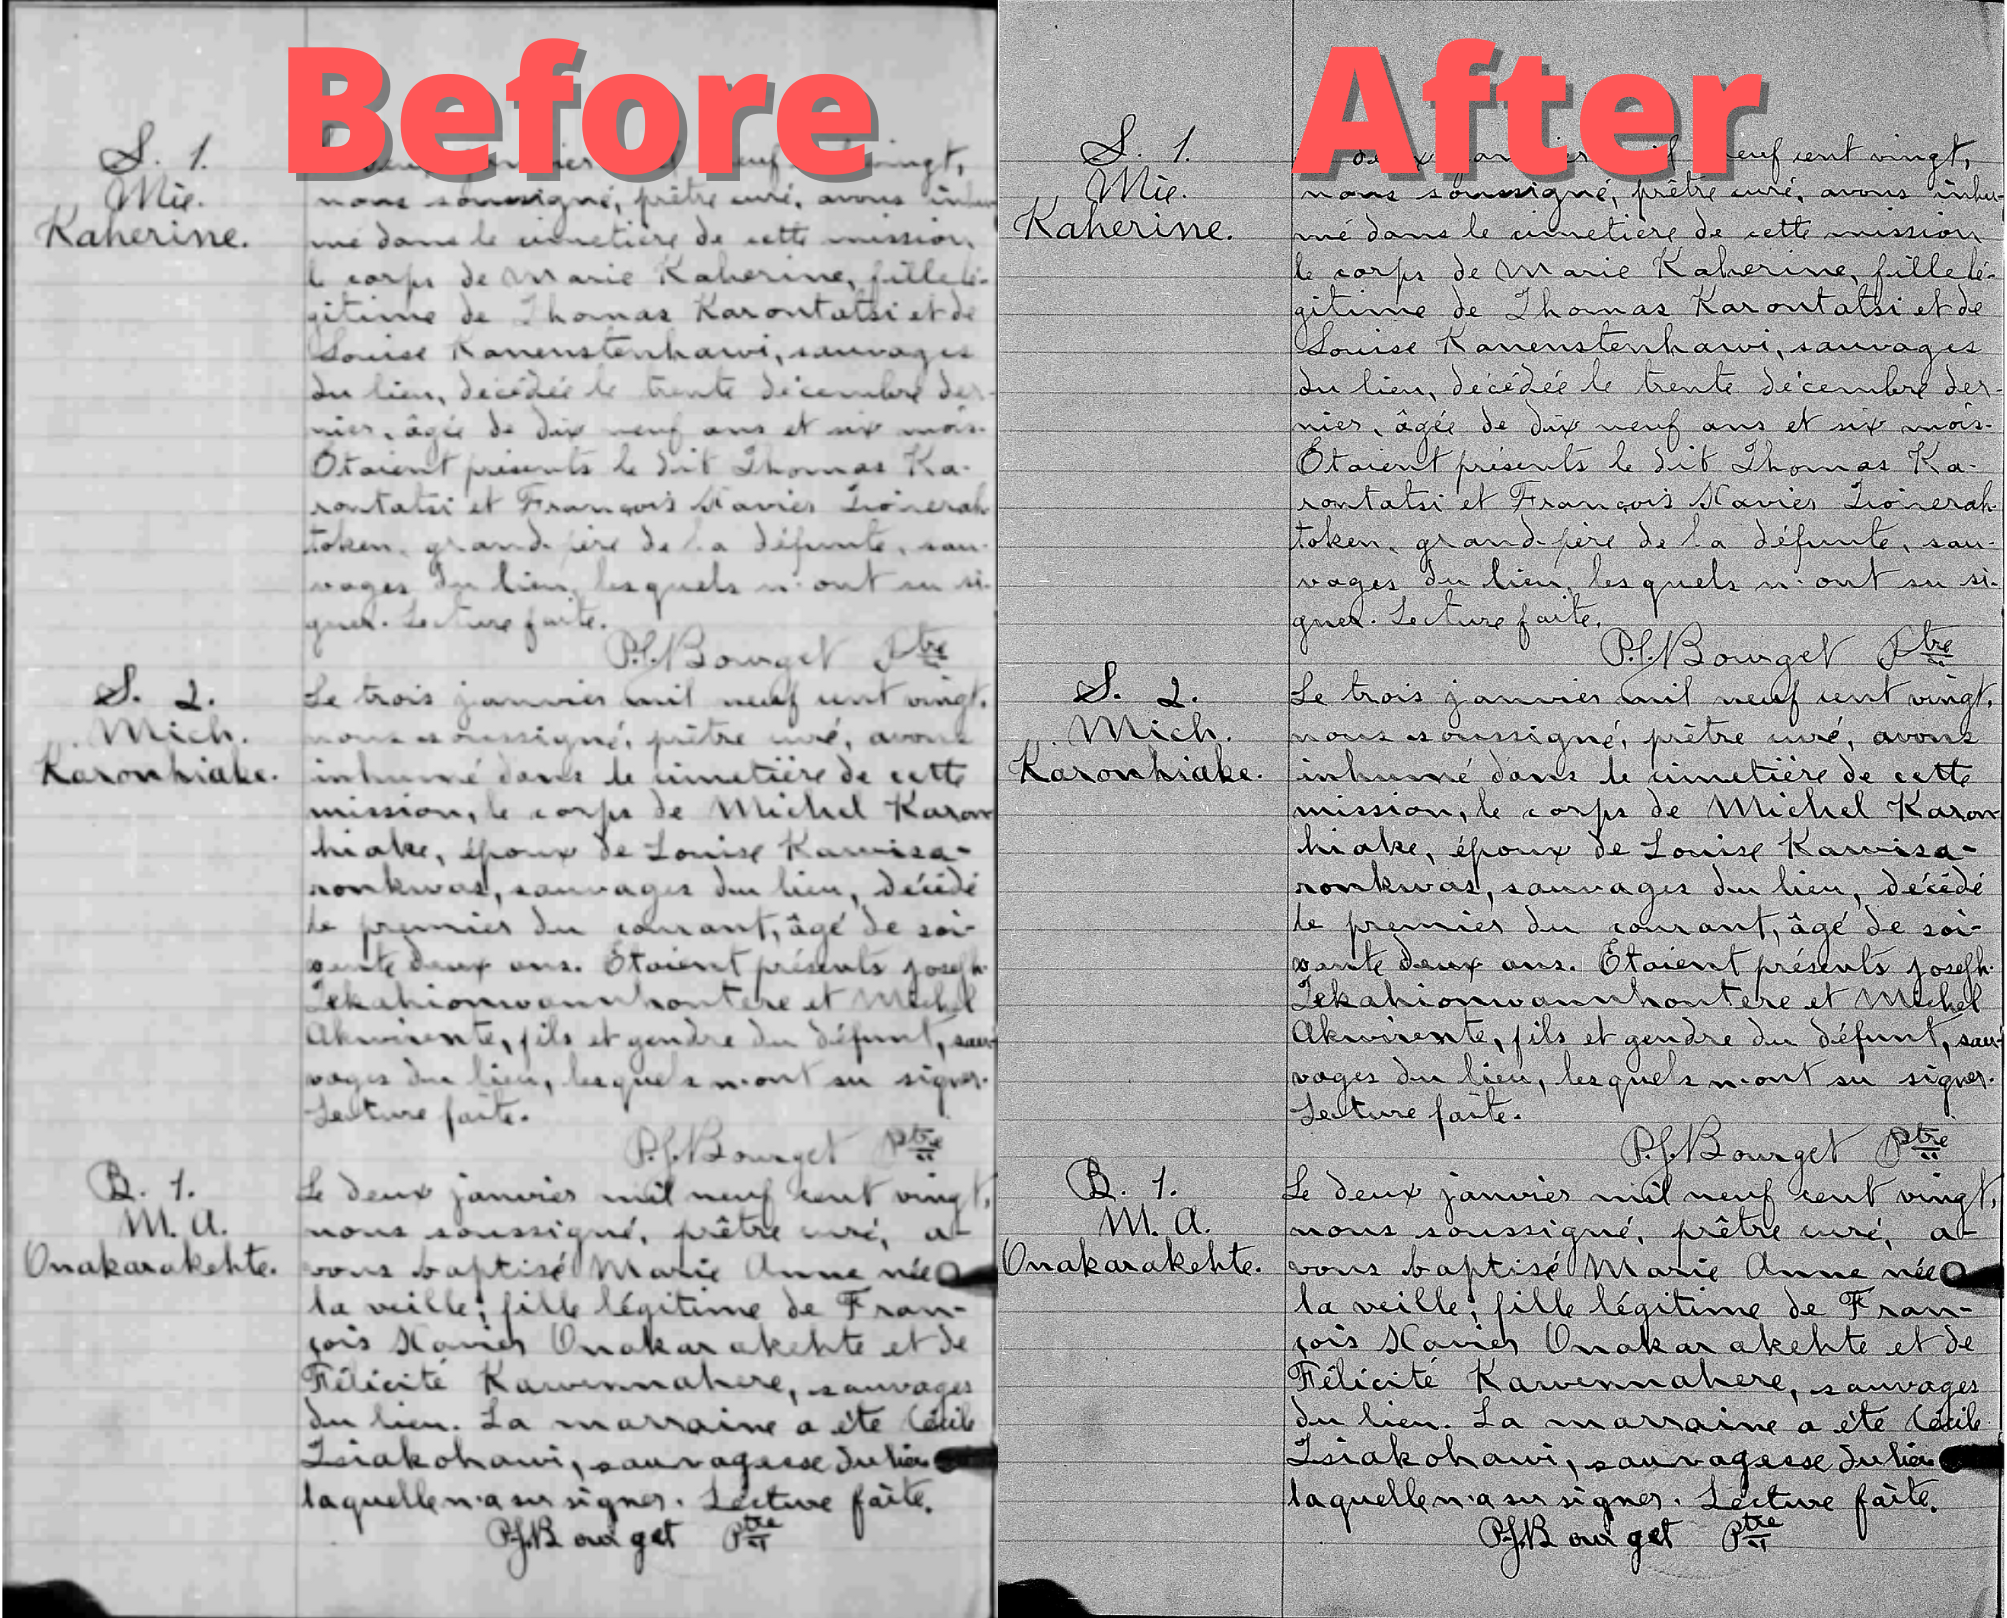 Before
S. 1.
Mie.
Kaherine.
nous soussigné, prêtre curé, avons inhu-
mé dans le cimetière de cette mission
le corps de Marie Kaherine, fille lé-
gitime de Thomas Karontatsi et de
Louise Kanenstenhawi, sauvages
du lieu, décédée le trente décembre der-
nier, âgée de dix neuf ans et six mois.
Etaient présents le dit Thomas Ka-
rontatsi et François Xavier
token, grand-père de la défunte, sau-
vages du lieu, lesquels n'ont su si-
gner. Lecture faite.
P.J. Bourget Ptre
S. 2.
Mich.
Karonhiake.
Le trois janvier mil neuf cent vingt,
nous soussigné, prêtre curé, avons
inhumé dans le cimetière de cette
mission, le corps de Michel Karon
hiake, époux de Louise Kawisa-
ronkwas, sauvages du lieu, décédé
le premier du courant, âgé de soi-
xante deux ans. Etaient présents Joseph
et Michel
Akwirente, fils et gendre du défunt, sau-
vages du lieu, lesquels n'ont su signer.
Lecture faite.
P.J. Bourget Ptre
B. 1.
M. A.
Onakarakehte.
Le deux janvier mil neuf cent vingt,
nous soussigné, prêtre curé, a-
vons baptisé Marie Anne née
la veille, fille légitime de Fran-
çois Xavier Onakarakehte et de
Félicité Kawennahere, sauvages
du lieu. La marraine a été Cécile
Tsiakohawi, sauvagesse du lieu
laquelle n'a su signer. Lecture faite.
P.J. Bourget Ptre
After
S. 1.
Mie.
Kaherine.
deux janvier mil neuf cent vingt,
nous soussigné, prêtre curé, avons inhu-
mé dans le cimetière de cette mission
le corps de Marie Kaherine, fille lé-
gitime de Thomas Karontatsi et de
Louise Kanenstenhawi, sauvages
du lieu, décédée le trente décembre der-
nier, âgée de dix neuf ans et six mois.
Etaient présents le dit Thomas Ka-
rontatsi et François Xavier
token, grand-père de la défunte, sau-
vages du lieu, lesquels n'ont su si-
gner. Lecture faite.
P.J. Bourget Ptre
S. 2.
Mich.
Karonhiake.
Le trois janvier mil neuf cent vingt,
nous soussigné, prêtre curé, avons
inhumé dans le cimetière de cette
mission, le corps de Michel Karon
hiake, époux de Louise Kawisa-
ronkwas, sauvages du lieu, décédé
le premier du courant, âgé de soi-
xante deux ans. Etaient présents Joseph
et Michel
Akwirente, fils et gendre du défunt, sau-
vages du lieu, lesquels n'ont su signer.
Lecture faite.
P.J. Bourget Ptre
B. 1.
M. A.
Onakarakehte.
Le deux janvier mil neuf cent vingt,
nous soussigné, prêtre curé, a-
vons baptisé Marie Anne née
la veille, fille légitime de Fran-
çois Xavier Onakarakehte et de
Félicité Kawennahere, sauvages
du lieu. La marraine a été Cécile
Tsiakohawi, sauvagesse du lieu
laquelle n'a su signer. Lecture faite.
P.J. Bourget Ptre